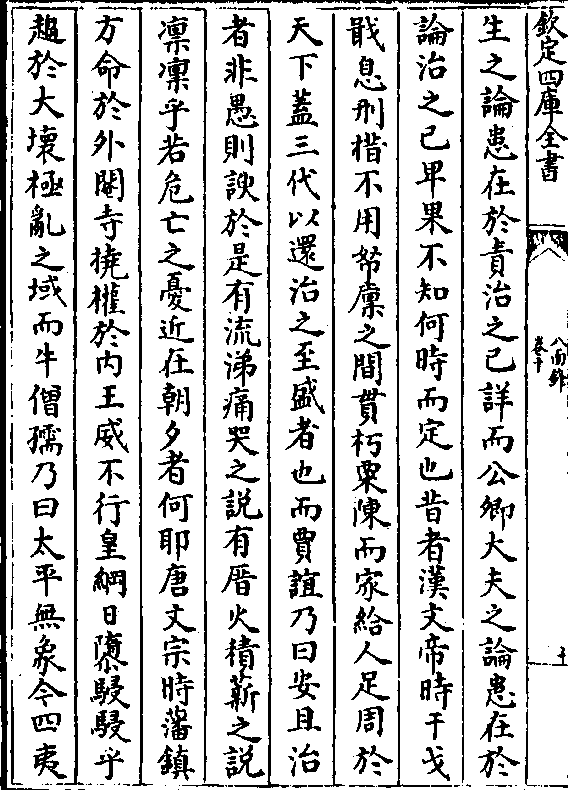 欽定四庫全書
八面鋒
卷十
生之論患在於責治之已詳而公卿大夫之論患在於
論治之已卑果不知何時而定也昔者漢文帝時干戈
戢息刑措不用帑廩之間貫朽粟陳而家給人足周於
天下蓋三代以還治之至盛者也而賈誼乃曰安且治
者非愚則諛於是有流涕痛哭之説有厝火積薪之説
凜凜乎若危亡之憂近在朝夕者何耶唐文宗時藩鎮
方命於外閽寺撓權於内王威不行皇綱日隳駸駸乎
趨於大壞極亂之域而牛僧孺乃曰太平無象今四夷